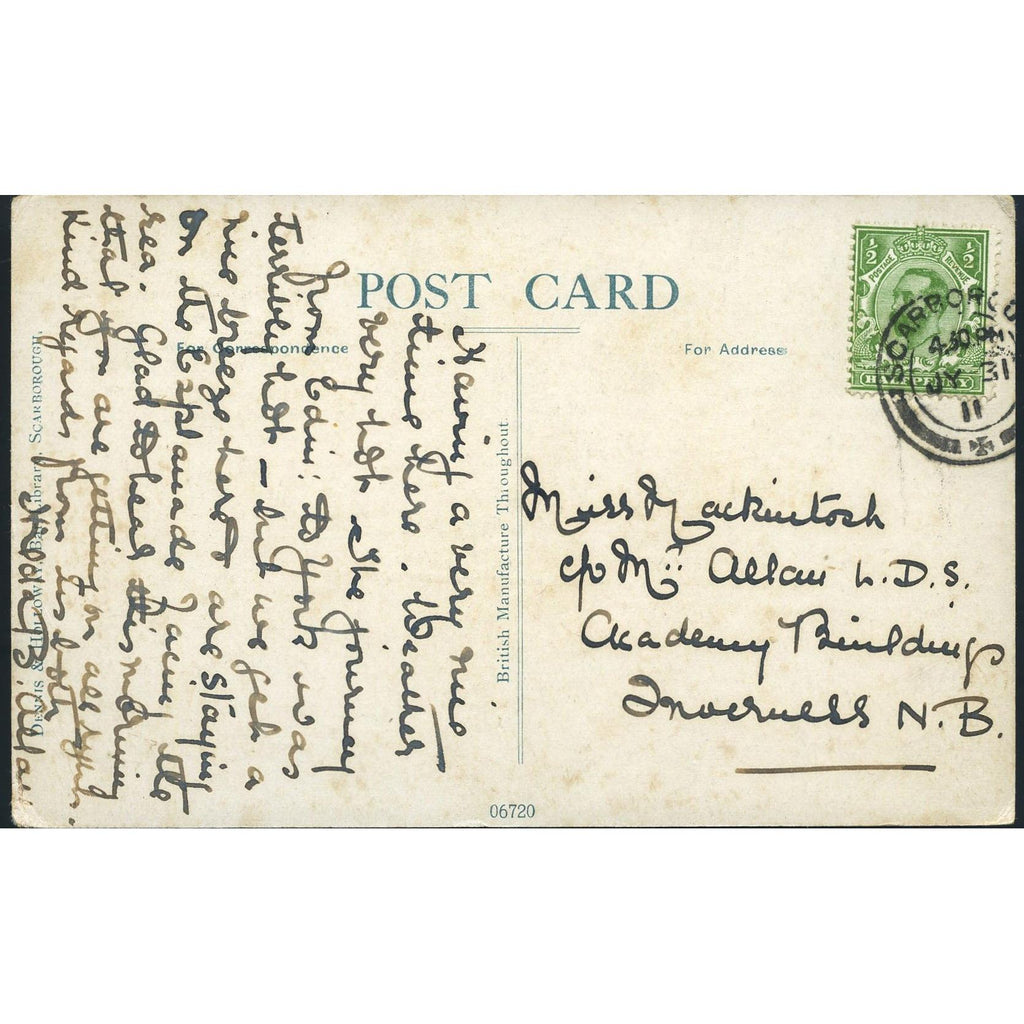 POST CARD
For Correspondence
For Address
Having a very nice
time here. Weather
very hot. The journey
from Edin: to York was
terribly hot – but we get a
nice breeze here & are staying
on the Esplanade facing the
sea. Glad to hear this morning
that you are getting on all right.
Kind regards from us both
Allan
DENNIS & HOLLOWAY, Library, SCARBOROUGH.
British Manufacture Throughout
½ ½
POSTAGE REVENUE
SCARBOROUGH
4.30 PM
JY 31
11
Miss Mackintosh
c/o Mr: Allan L.D.S.
Academy Buildings
Inverness N.B.
06720